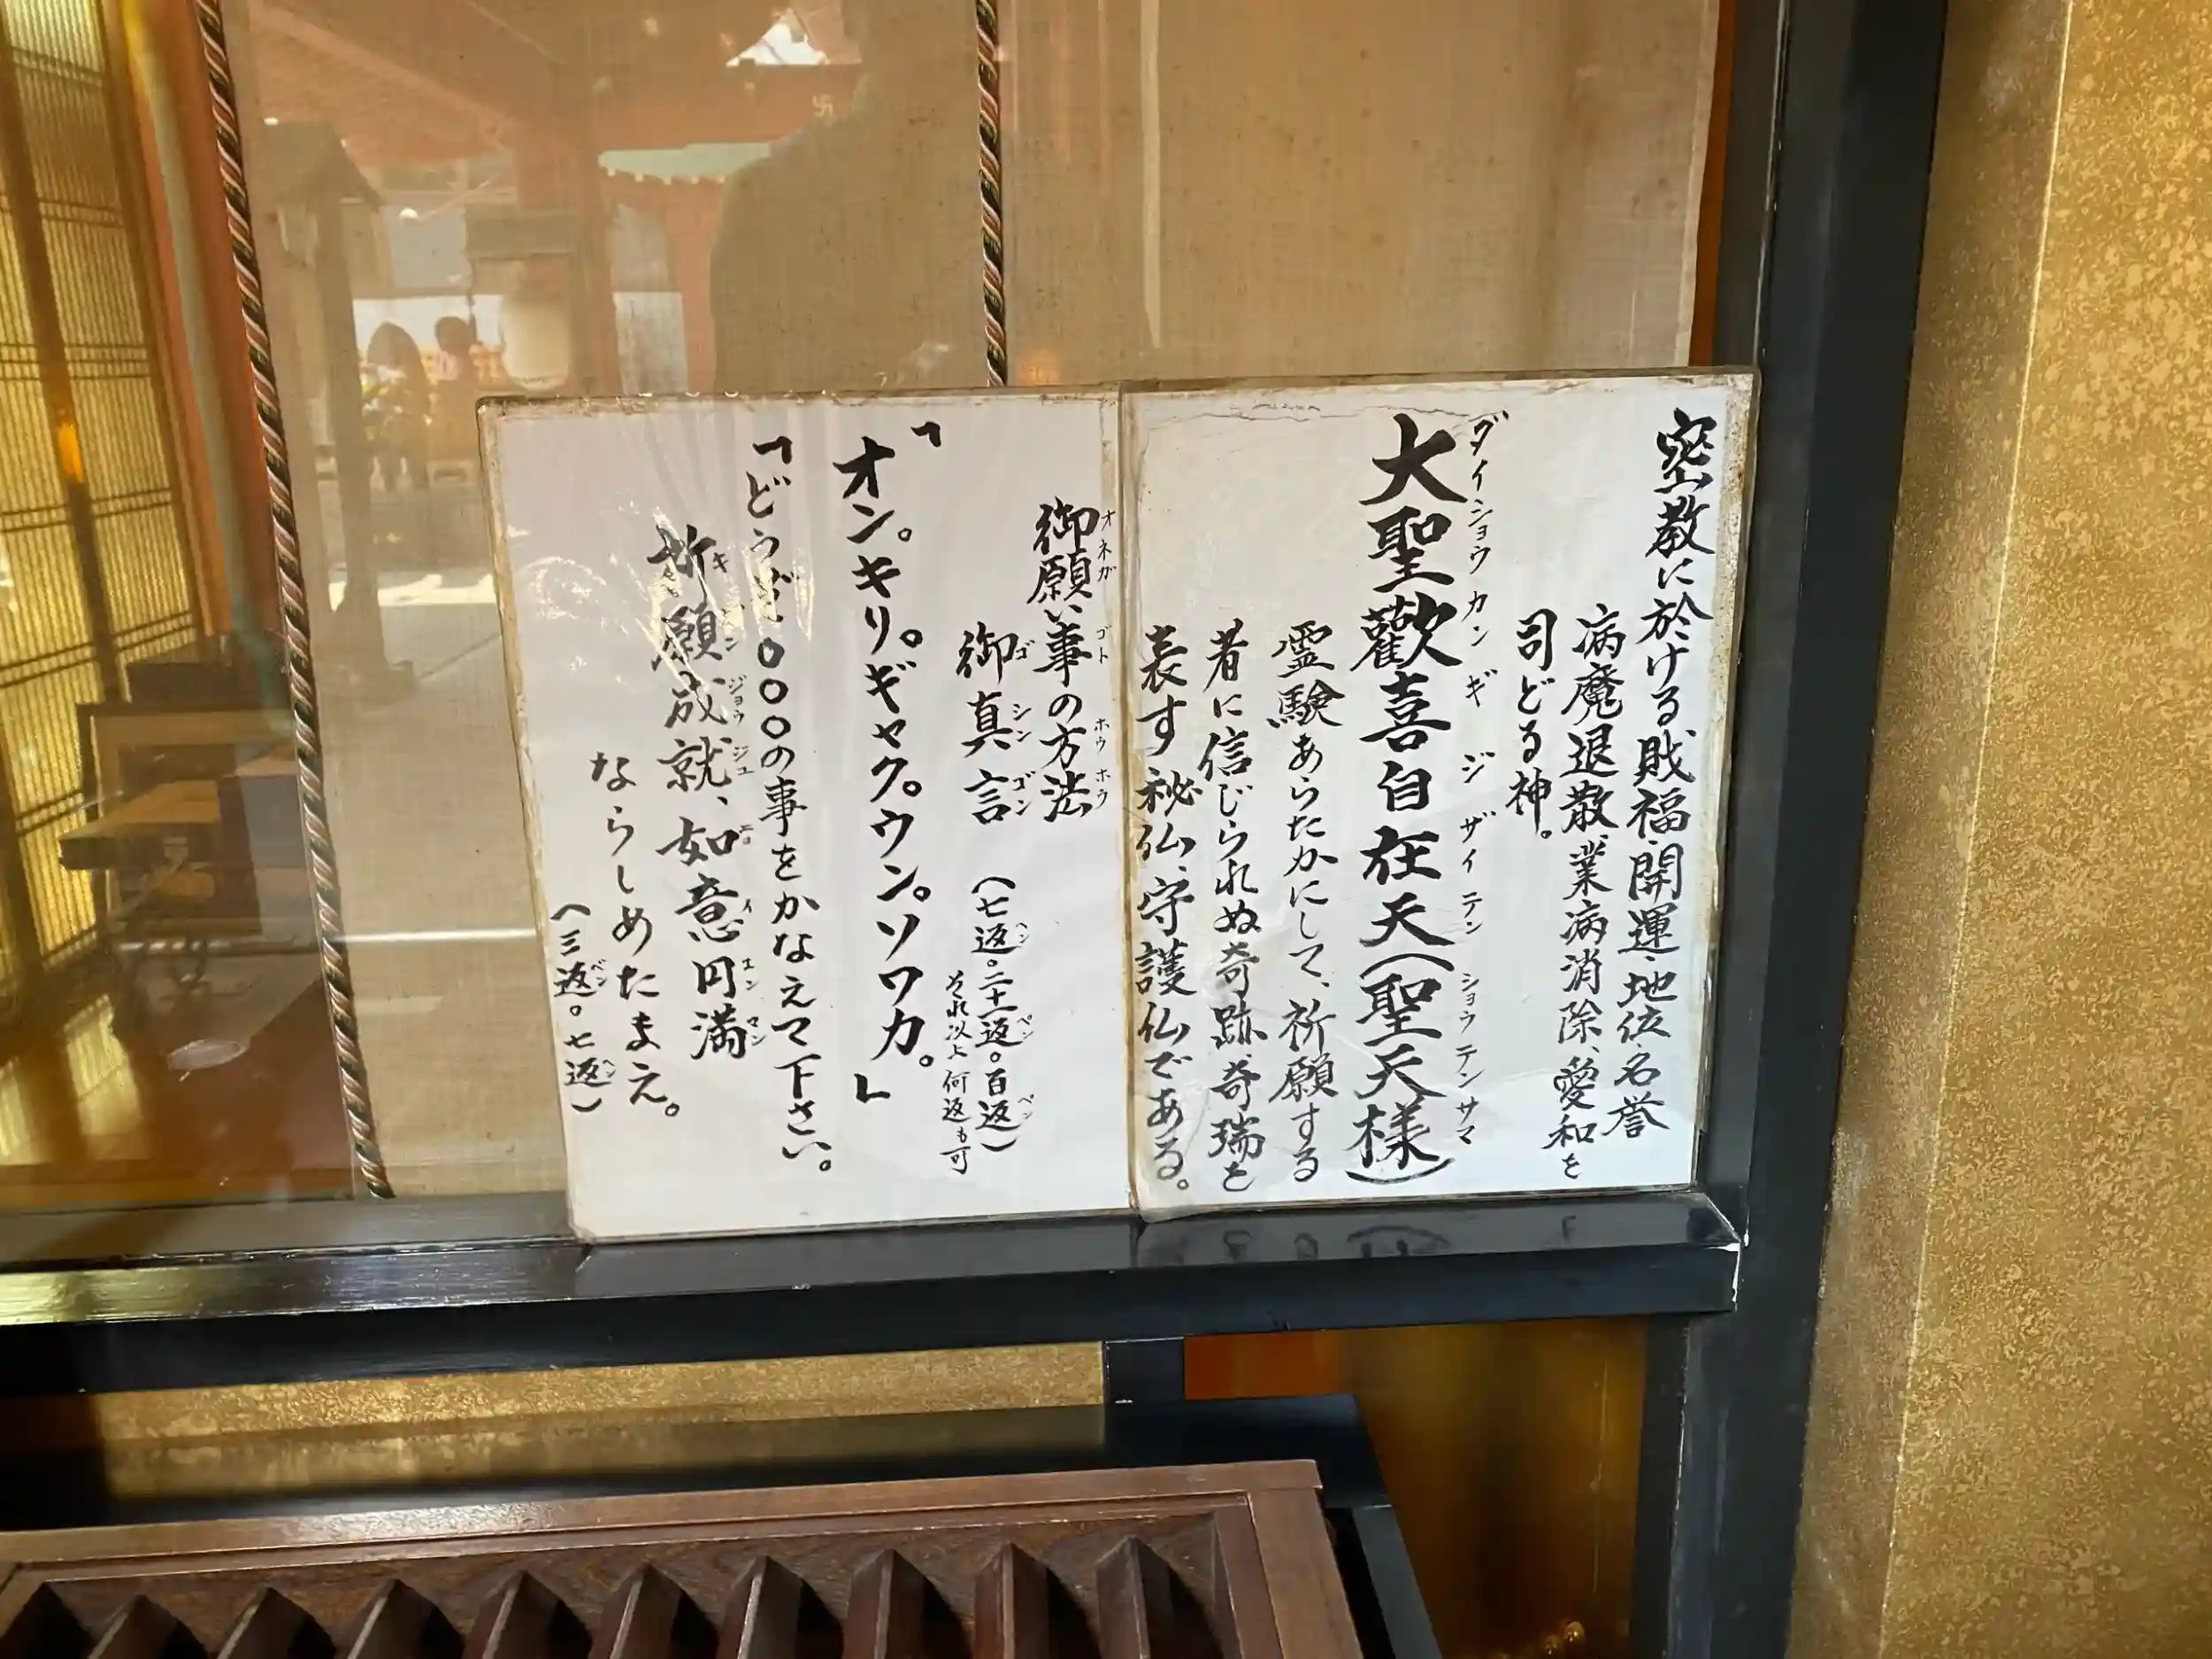 密教に於ける財福、開運、地位、名誉
病魔退散、業病消除、愛和を
司どる神。
ダイショウカンギジザイテン ショウテンサマ
大聖歡喜自在天(聖天様)
霊験あらたかにして、祈願する
者に信じられぬ奇跡、奇瑞を
表す秘仏、守護仏である。
オネガ ゴト ホウホウ
御願い事の方法
ゴシンゴン ヘン ペン ペン
御真言 (七返。二十一返。百返)
それ以上何返も可
「オン。キリ。ギャク。ウン。ソワカ。」
「どうぞ、〇〇〇の事をかなえて下さい。
キガンジョウジュ ニョイエンマン
祈願成就、如意円満
ならしめたまえ。
ベン ヘン
(三返。七返)